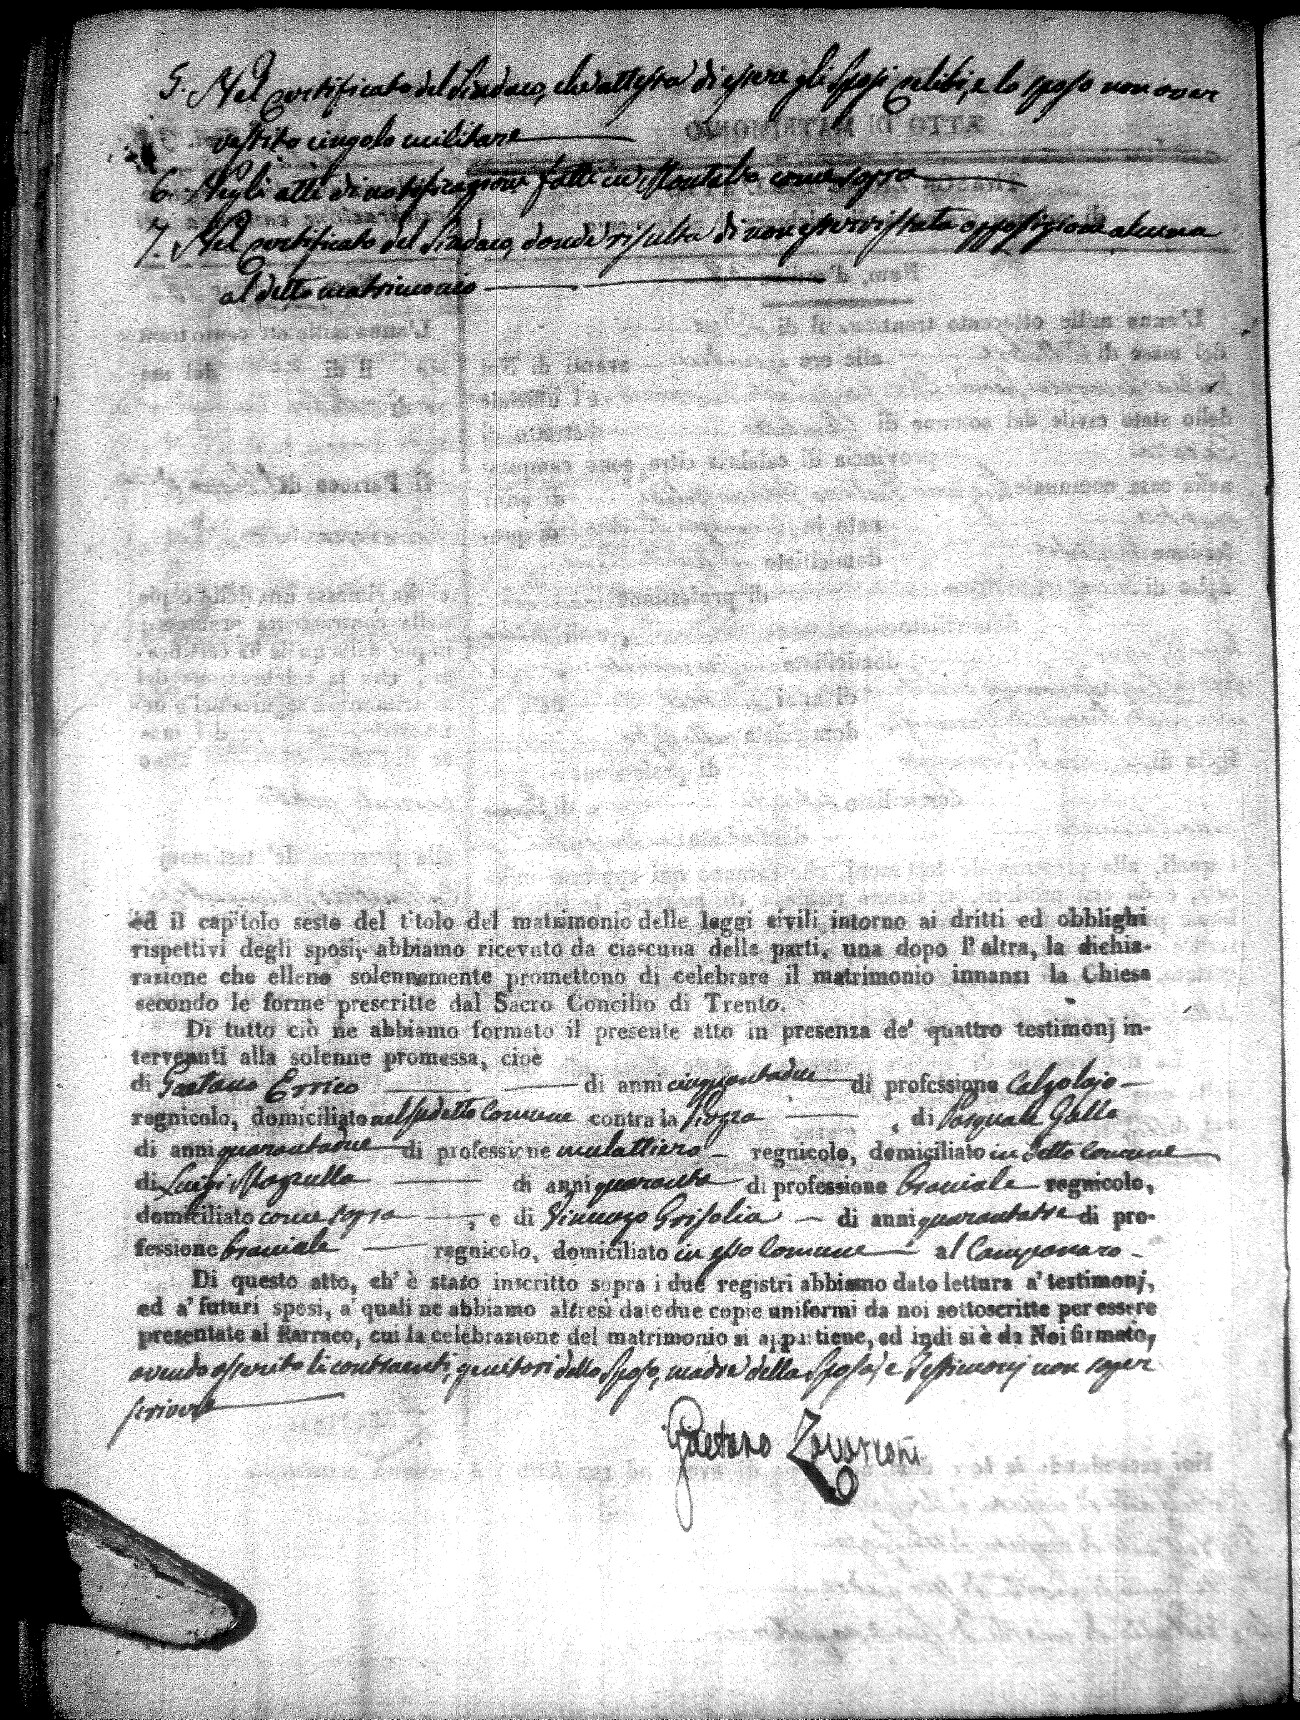 5. Nel certificato del Sindaco, che attesta di essere gli Sposi celibi, e lo sposo non aver
vestito cingolo militare
6. Negli atti di notificazione fatte in Montalto come sopra
7. Nel certificato del Sindaco, donde risulta di non esservi stata opposizione alcuna
al detto matrimonio
ed il capitolo sesto del titolo del matrimonio delle leggi civili intorno ai dritti ed obblighi
rispettivi degli sposi, abbiamo ricevuto da ciascuna delle parti, una dopo l' altra, la dichia-
razione che elleno solennemente promettono di celebrare il matrimonio innanzi la Chiesa
secondo le forme prescritte dal Sacro Concilio di Trento.
Di tutto ciò ne abbiamo formato il presente atto in presenza de' quattro testimonj in-
tervenuti alla solenne promessa, cioè
di Gaetano Errico di anni cinquantadue di professione Calzolajo
regnicolo, domiciliato nel sudetto Comune contra la , di Pasquale Gallo
di anni quarantadue di professione mulattiero regnicolo, domiciliato in detto Comune
di Luigi Magnullo di anni quaranta di professione Braciale regnicolo,
domiciliato come sopra , e di Vincenzo Grisolia di anni quarantatre di pro-
fessione Braciale regnicolo, domiciliato in esso Comune al Campanaro
Di questo atto, ch' è stato inscritto sopra i due registri abbiamo dato lettura a' testimonj,
ed a' futuri sposi, a' quali ne abbiamo altresì date due copie uniformi da noi sottoscritte per essere
presentate al Parroco, cui la celebrazione del matrimonio si appartiene, ed indi si è da Noi firmato,
avendo asserito li contraenti, genitori dello Sposo, madre della Sposa, e Testimonj non saper
scrivere
Gaetano Zavarroni